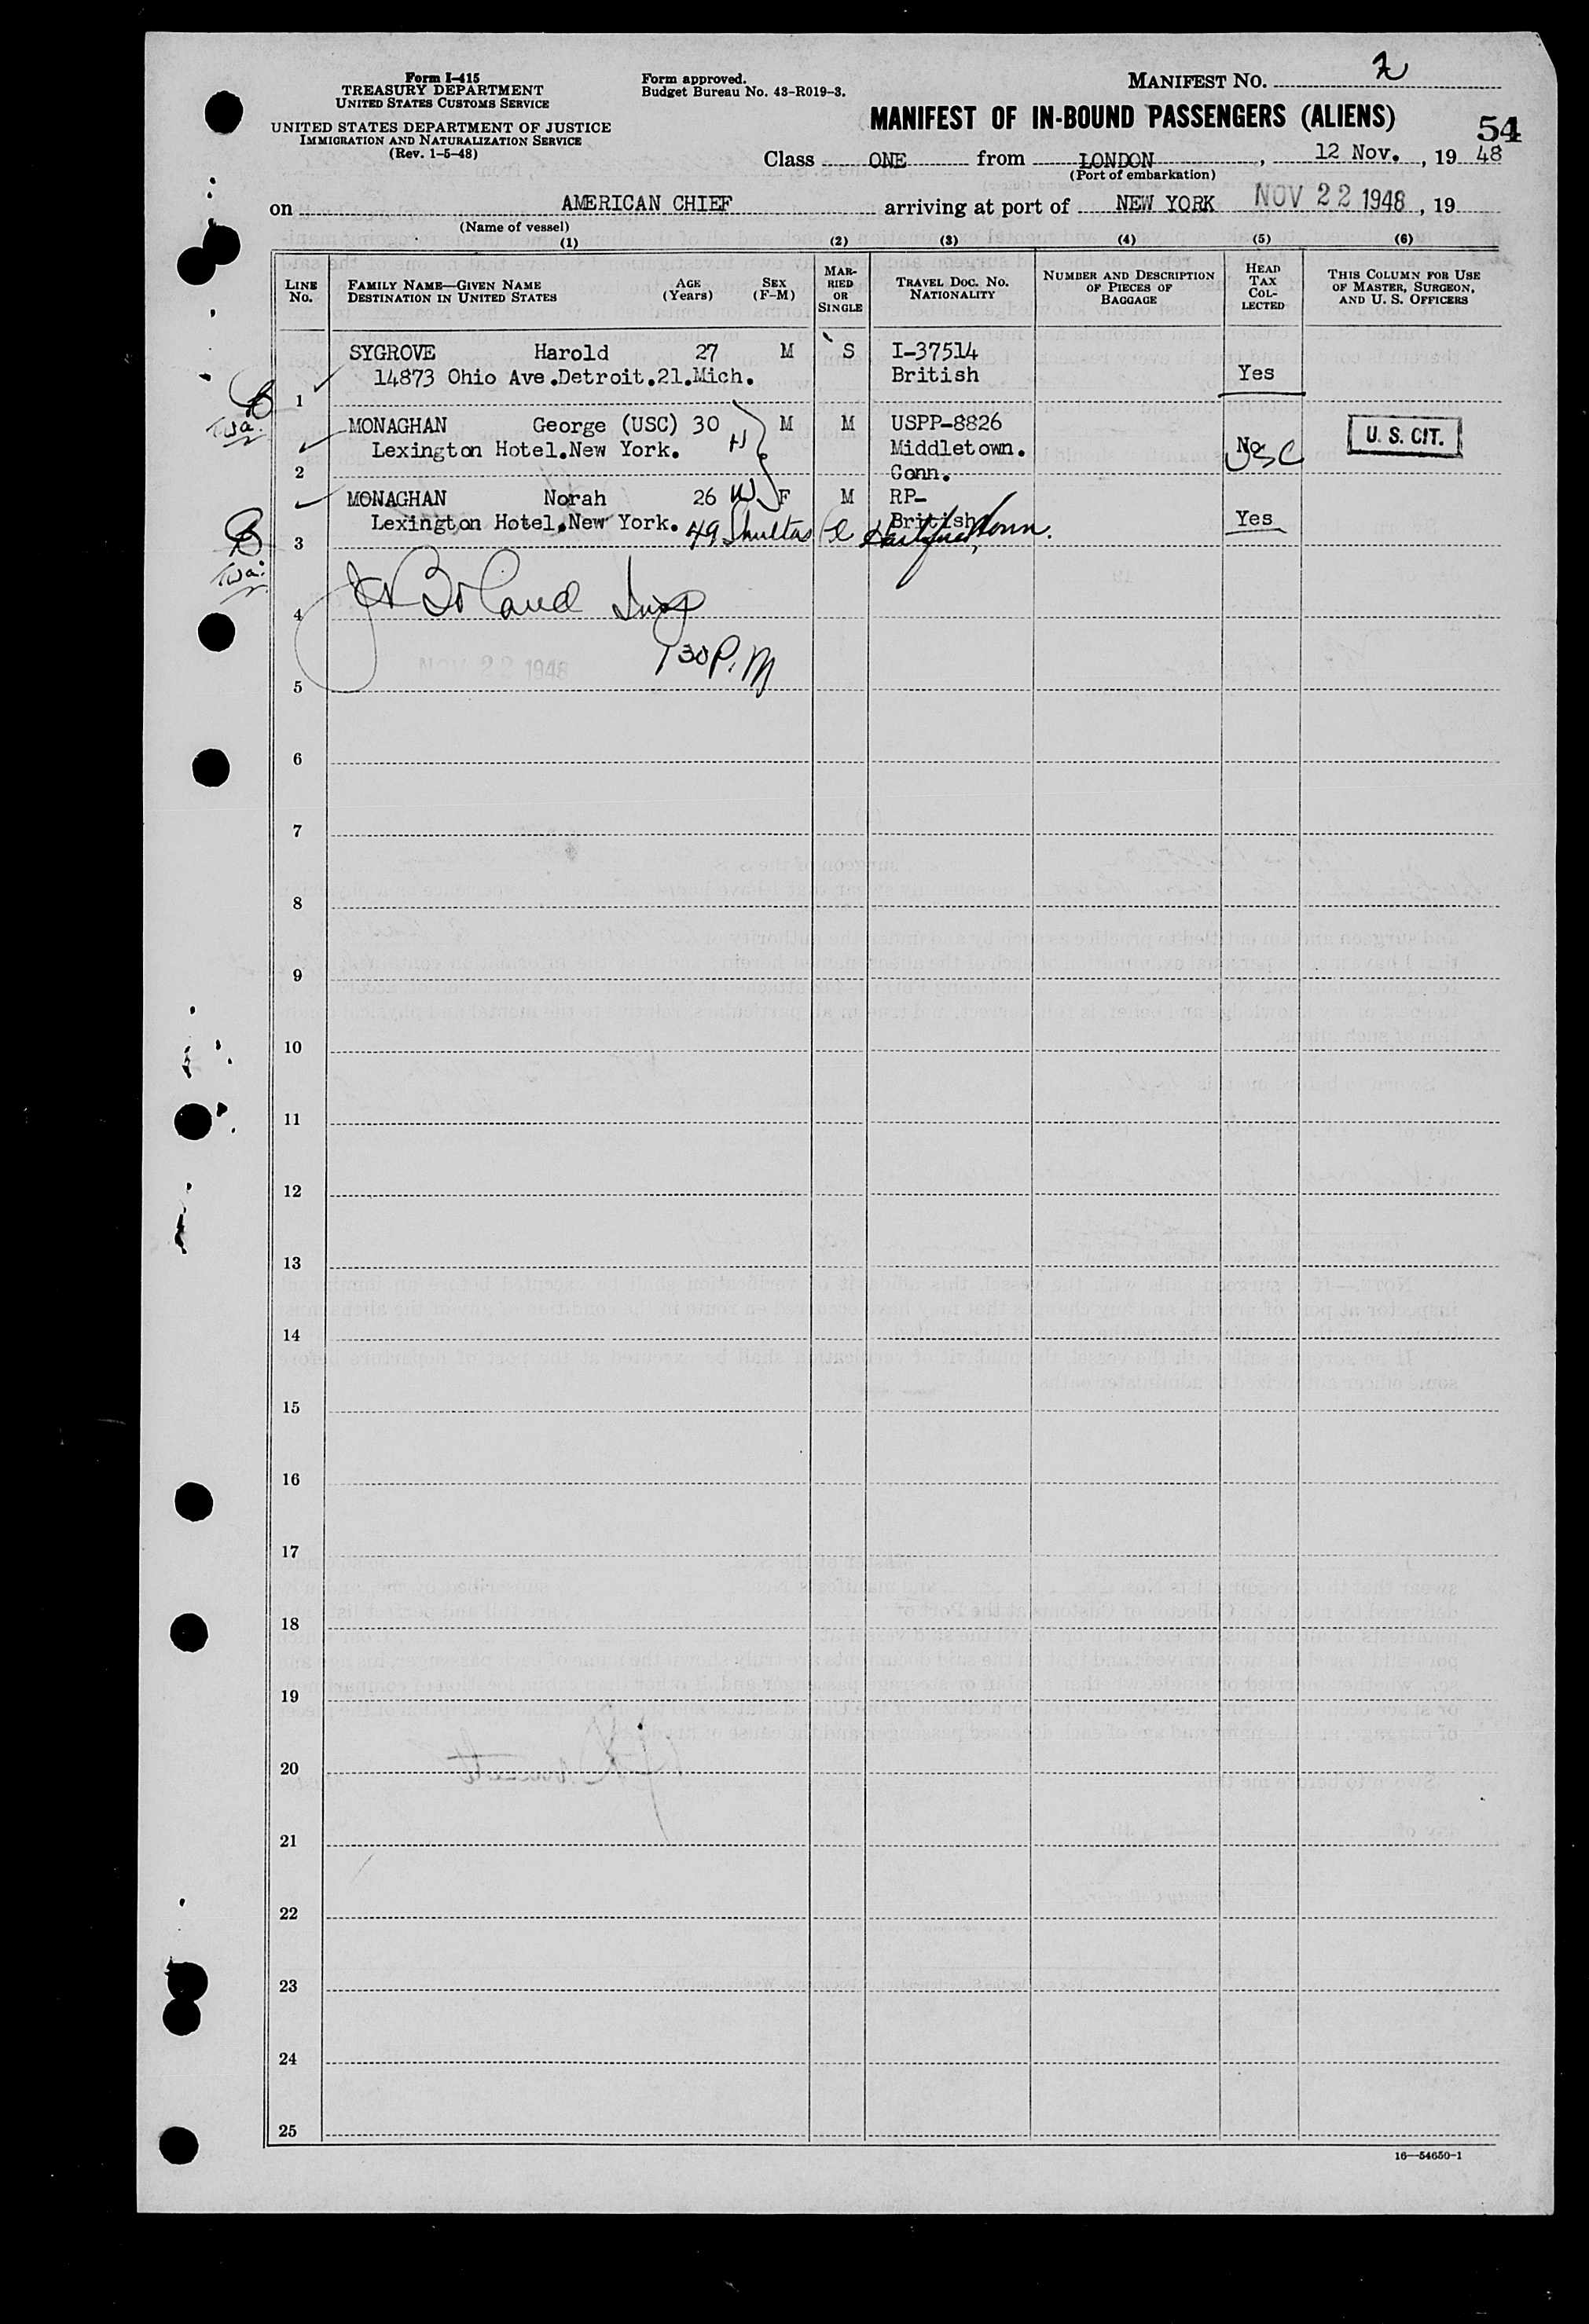 Form I-415
TREASURY DEPARTMENT
UNITED STATES CUSTOMS SERVICE
UNITED STATES DEPARTMENT OF JUSTICE
IMMIGRATION AND NATURALIZATION SERVICE
(Rev. 1-5-48)
Form approved.
Budget Bureau No. 43-R019-3.
MANIFEST NO. 2
MANIFEST OF IN-BOUND PASSENGERS (ALIENS)
54
Class ONE from LONDON, 12 Nov., 19 48
(Port of embarkation)
on AMERICAN CHIEF arriving at port of NEW YORK NOV 22 1948, 19
(Name of vessel)
(1) (2) (3) (4) (5) (6)
LINE No. FAMILY NAME—GIVEN NAME DESTINATION IN UNITED STATES AGE (Years) SEX (F-M) MARRIED OR SINGLE TRAVEL DOC. NO. NATIONALITY NUMBER AND DESCRIPTION OF PIECES OF BAGGAGE HEAD TAX COLLECTED THIS COLUMN FOR USE OF MASTER, SURGEON, AND U. S. OFFICERS
SYGROVE Harold 27 M S I-37514
14873 Ohio Ave.Detroit.21.Mich. British Yes
1
MONAGHAN George (USC) 30 M M USPP-8826 U. S. CIT.
Lexington Hotel.New York. H Middletown. No USC
2 Conn.
MONAGHAN Norah 26 W F M RP-
Lexington Hotel.New York. British Yes
49 Pl Hartford, Conn.
3
Boland Insp
4
130 P.M
NOV 22 1948
5
6
7
8
9
10
11
12
13
14
15
16
17
18
19
20
21
22
23
24
25
16—54650-1